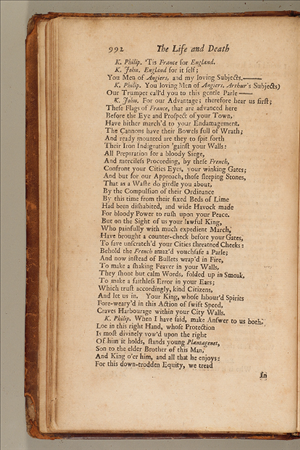 992 The Life and Death
K. Philip. 'Tis France for England.
K. John. England for it self;
You Men of Angiers, and my loving Subjects.——
K. Philip. You loving Men of Angiers, Arthur's Subjects;
Our Trumpet call'd you to this gentle Parle——
K. John. For our Advantage; therefore hear us first;
These Flags of France, that are advanced here
Before the Eye and Prospect of your Town,
Have hither march'd to your Endamagement.
The Cannons have their Bowels full of Wrath;
And ready mounted are they to spit forth
Their Iron Indignation 'gainst your Walls:
All Preparation for a bloody Siege,
And merciless Proceeding, by these French,
Confront your Cities Eyes, your winking Gates;
And but for our Approach, those sleeping Stones,
That as a Waste do girdle you about,
By the Compulsion of their Ordinance
By this time from their fixed Beds of Lime
Had been dishabited, and wide Havock made
For bloody Power to rush upon your Peace.
But on the Sight of us your lawful King,
Who painfully with much expedient March,
Have brought a counter-check before your Gates,
To save unscratch'd your Cities threatned Cheeks:
Behold the French amaz'd vouchsafe a Parle;
And now instead of Bullets wrap'd in Fire,
To make a shaking Feaver in your Walls,
They shoot but calm Words, folded up in Smoak,
To make a faithless Error in your Ears;
Which trust accordingly, kind Citizens,
And let us in. Your King, whose labour'd Spirits
Fore-weary'd in this Action of swift Speed,
Craves Harbourage within your City Walls.
K. Philip. When I have said, make Answer to us both.
Loe in this right Hand, whose Protection
Is most divinely vow'd upon the right
Of him it holds, stands young Plantagenet,
Son to the elder Brother of this Man,
And King o'er him, and all that he enjoys:
For this down-trodden Equity, we tread
In